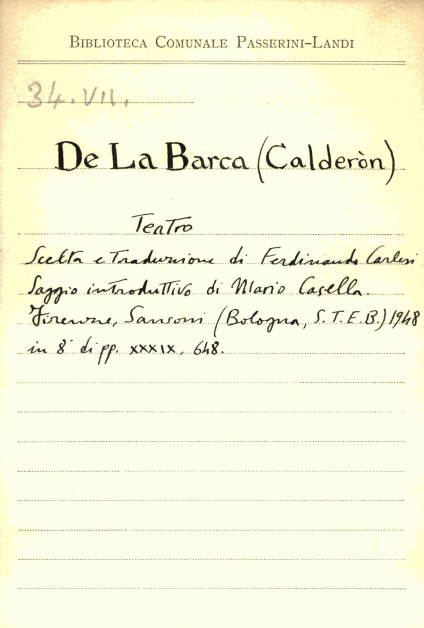 BIBLIOTECA COMUNALE PASSERINI-LANDI
34.VII.
De La Barca (Calderòn)
Teatro
Scelta e Traduzione di Ferdinando Carlesi
Saggio introduttivo di Mario Casella.
Firenze, Sansoni (Bologna, S.T.E.B.) 1948
in 8° di pp. XXXIX, 648.